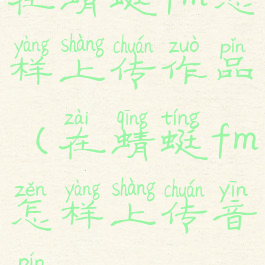 在蜻蜓fm怎
yàng shàng chuán zuò pǐn
样上传作品
zài qīng tíng
(在蜻蜓fm
zěn yàng shàng chuán yīn
怎样上传音
pín